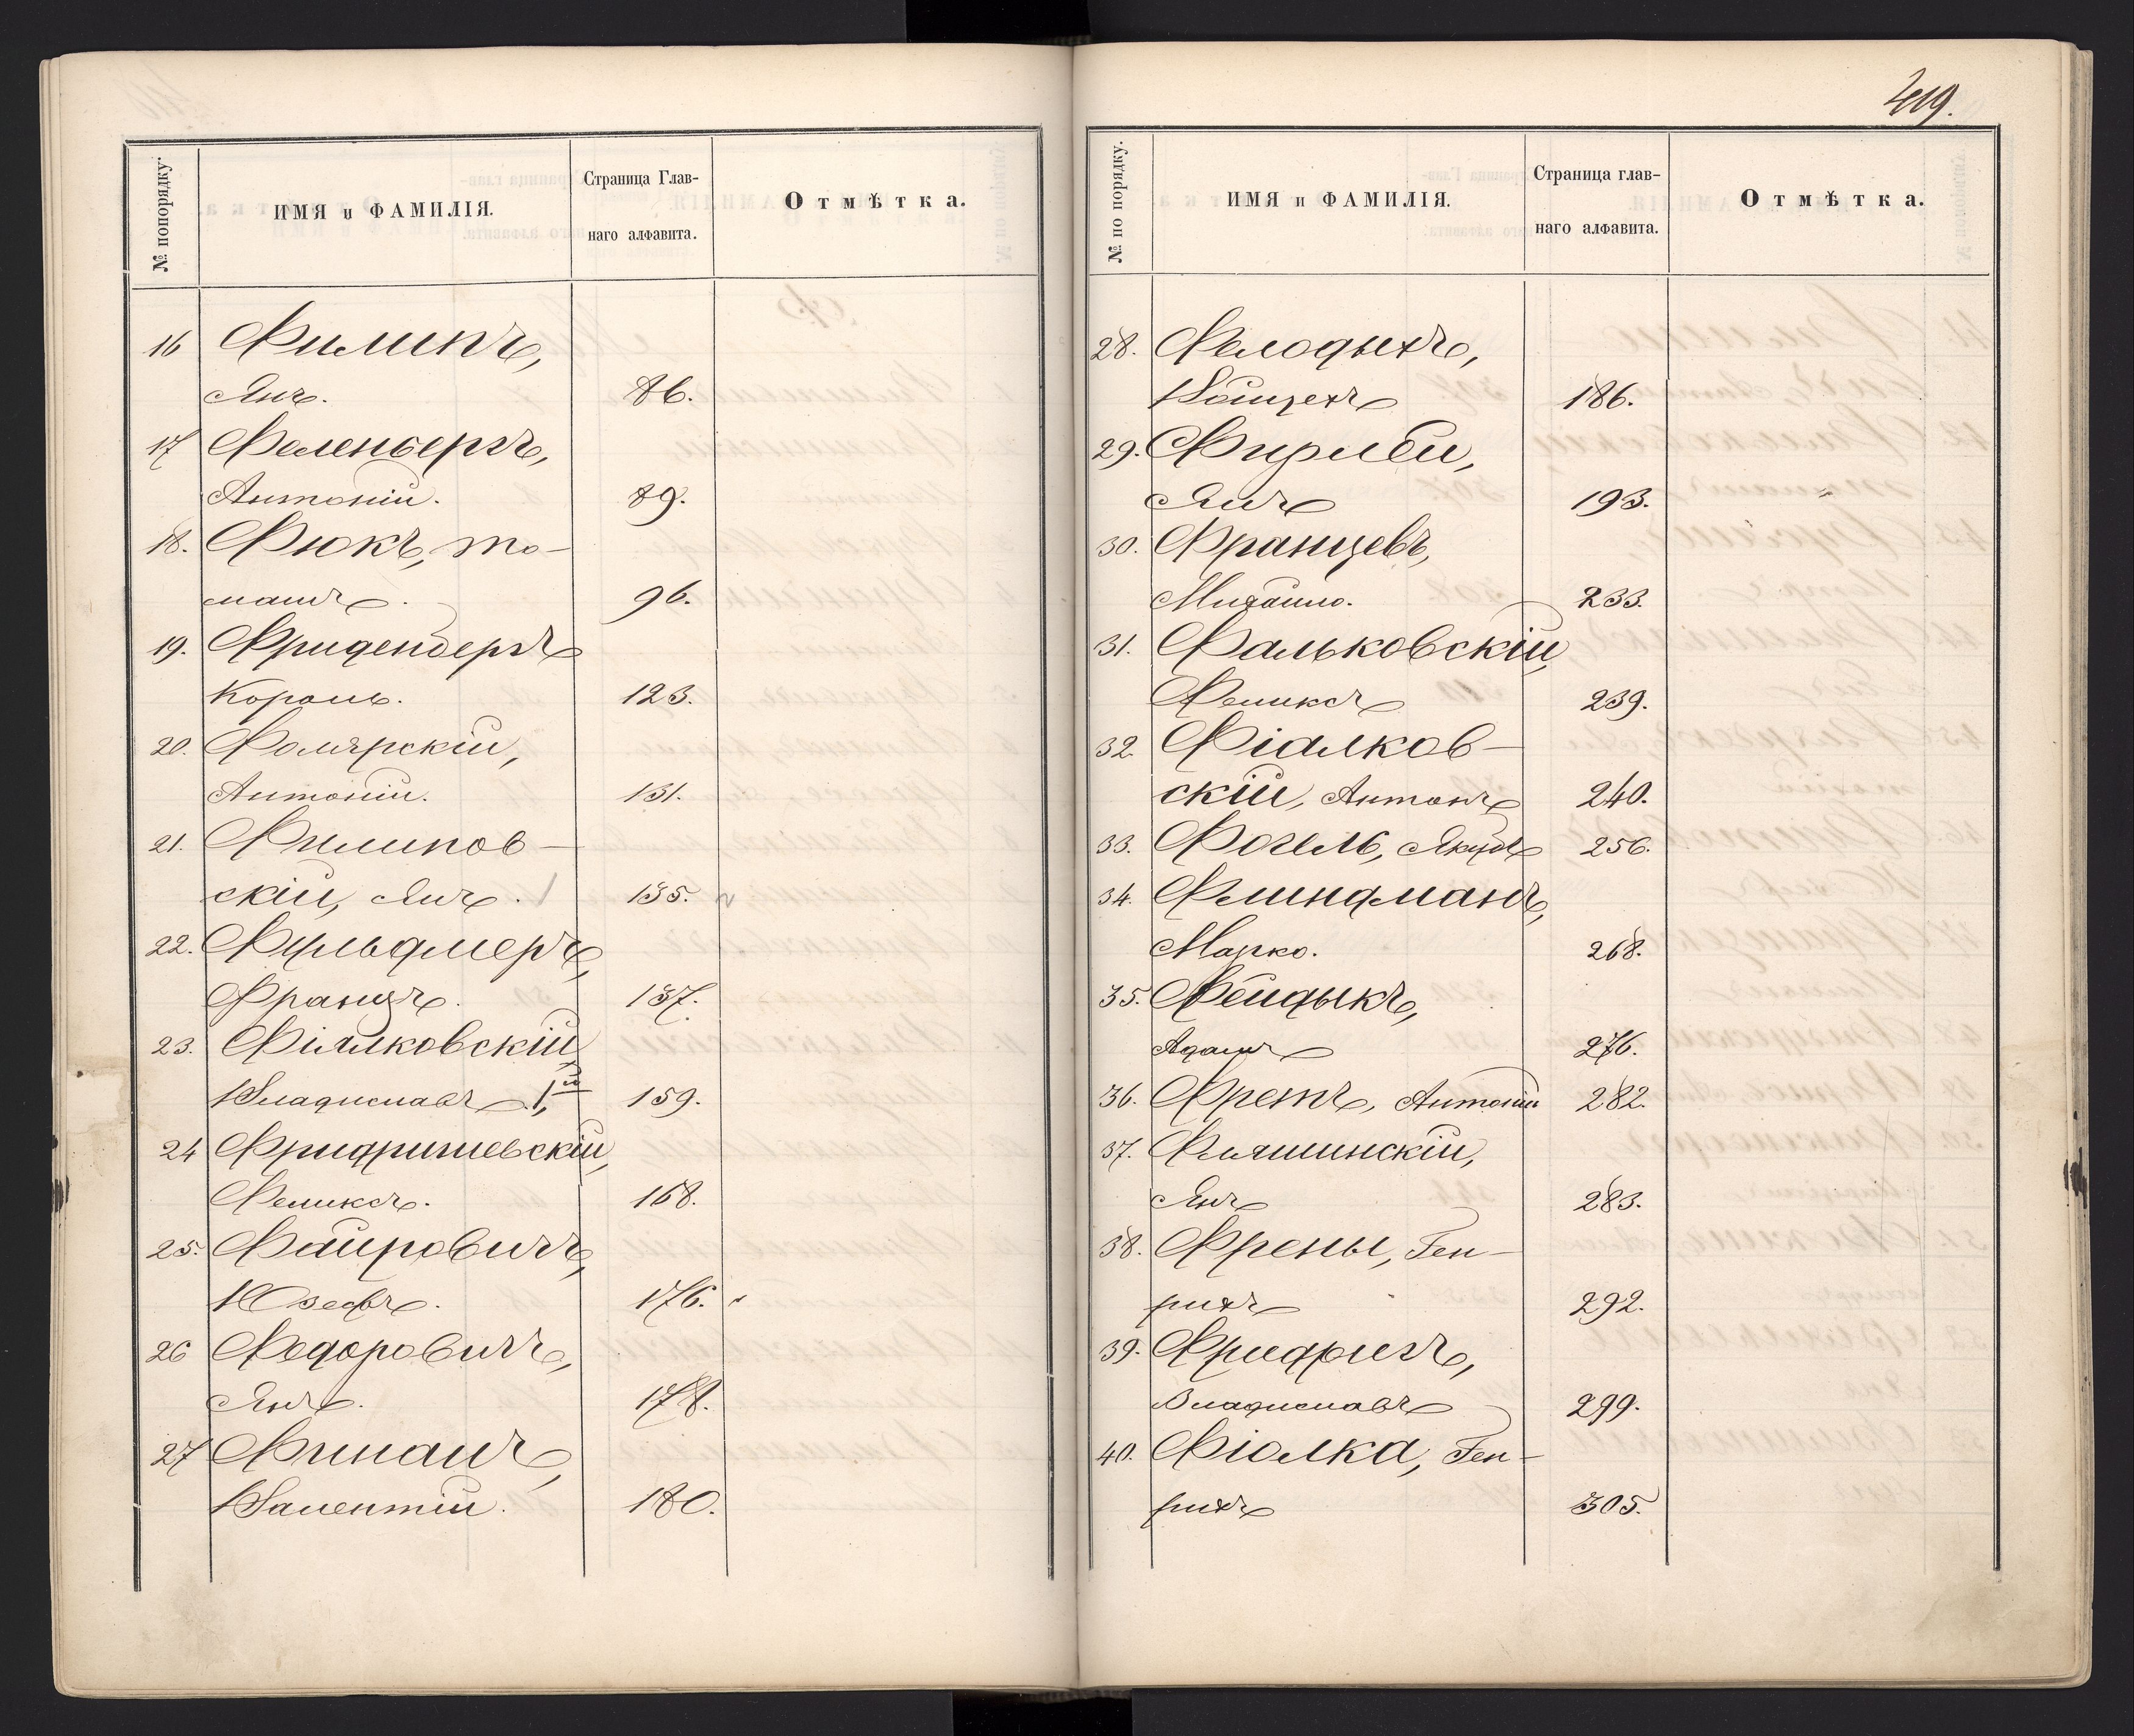 № попорядку.
ИМЯ и ФАМИЛІЯ.
Страница Глав-
наго алфавита.
Отмѣтка.
16 Филипъ,
Янъ. 86.
17 Феленбергъ,
Антоній. 89.
18. Фюкъ, То-
машъ. 96.
19. Фриденбергъ
Король. 123.
20. Фолярскій,
Антоній. 131.
21. Филипов-
скій, Янъ. 135.
22. Фульдмеръ,
Францъ. 137.
23. Фіялковскій,
Владиславъ 1, 159.
24 Фридришевскій,
Феликсъ. 168.
25. Файровичъ,
Юзефъ. 176.
26 Федоровичъ,
Янъ. 178.
27 Финанъ,
Валентій. 180.
419.
№ по порядку.
ИМЯ и ФАМИЛІЯ.
Страница глав-
наго алфавита.
Отмѣтка.
28. Фолодыхъ,
Войцехъ 186.
29. Фирлѣи,
Янъ 193.
30. Францевъ,
Михайло. 233.
31. Фальковскій,
Феликсъ 239.
32. Фіалков-
скій, Антонъ 240.
33. Фогель, Якубъ 256.
34. Флиндманъ,
Марко. 268.
35. Фейдыкъ,
Адамъ 276.
36. Фретъ, Антоній 282.
37. Фляшинскій,
Янъ 283.
38. Френы, Ген-
рихъ 292.
39. Фридрихъ,
Владиславъ 299.
40. Фіолка, Ген-
рихъ 305.